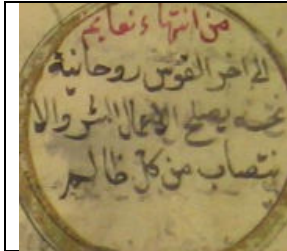 من انتهاء نعايم
الى اخر القوس روحانية
نحسه يصلح لاعمال الشر والا
نتصاب من كل ظالم